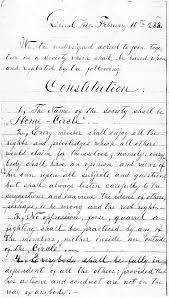 February 10th 188
We the undersigned agree to join toge
ther in a society which shall be based upon
and regulated by the following
Constitution.
1. The Name of the Society shall be
"Home-Circle"
2. Every member shall enjoy all the
rights and priviledges which all others
would claim for themselves, namely: every
body shall have an opinion and views of
his own upon all subjects and questions
but shall always listen carefully to the
suggestions and examine the ideas of others,
perhaps, he is wrong and the rest right.
3. No oppression, fose, quarrel or
fighting shall be practised by any of
the members, neither inside nor outside
of the Circle.
4. Everybody shall be fully in
dependent of all the others, provided that
his actions and conduct are not in the
way of anybody.